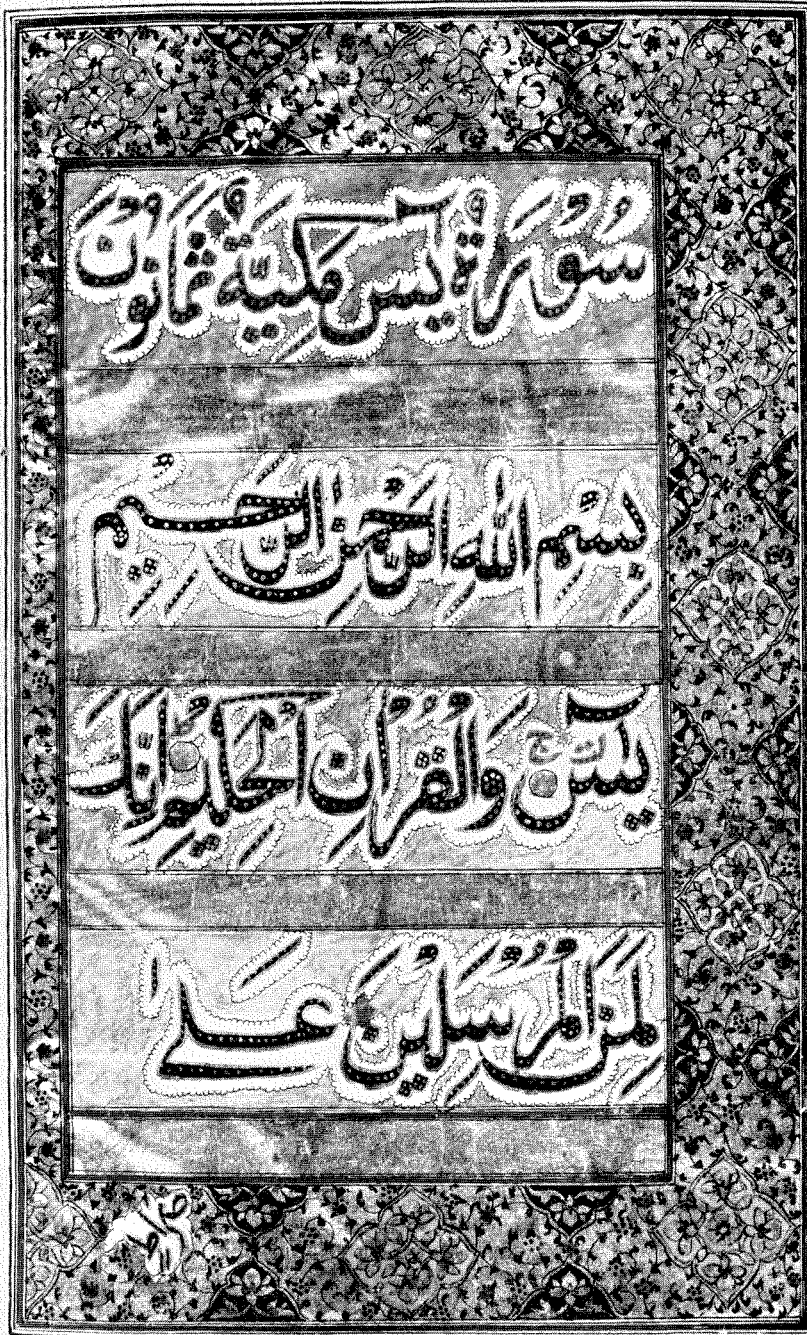 سُورَةُ يٰسٓ مَكِّيَّةٌ ثَمَانُونَ
بِسْمِ اللّٰهِ الرَّحْمٰنِ الرَّحِيْمِ
يٰسٓ وَالْقُرْاٰنِ الْحَكِيْمِ اِنَّكَ
لَمِنَ الْمُرْسَلِيْنَ عَلٰى